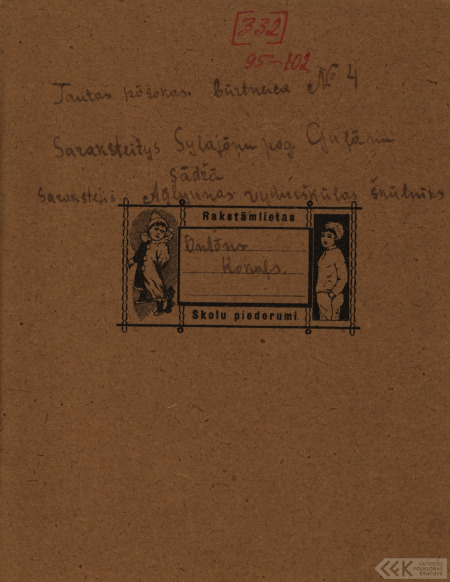 [332]
95-102
Tautas pôsokas. Burtneica № 4
Saraksteitys Sylajôņu pog. Gulānu
sādžā
Sarakstejis Aglyunas vydusškūlas škūlnīks
Rakstāmlietas
Ontōns
Kokals.
Skolu piederumi
LATVIEŠU
FOLKLORAS
KRĀTUVE